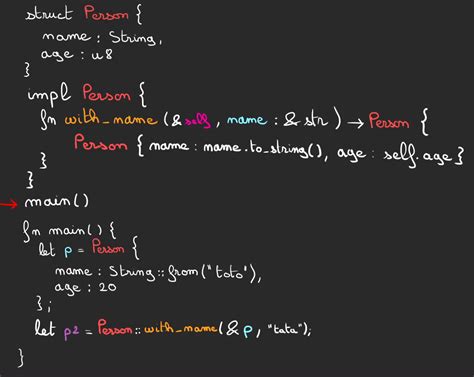 struct Person {
name : String,
age : u8
}
impl Person {
fn with_name (&self, name : &str) → Person {
Person { name: name.to_string(), age : self.age }
}
}
→ main()
fn main() {
let p = Person {
name : String::from("toto"),
age : 20
};
let p2 = Person::with_name(&p, "tata");
}